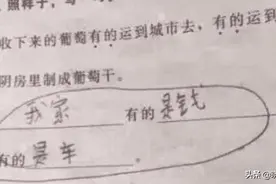 照样子，
收下来的葡萄有的运到城市去，有的运到
阴房里制成葡萄干。
我家 有的 是钱
有的 是车 。